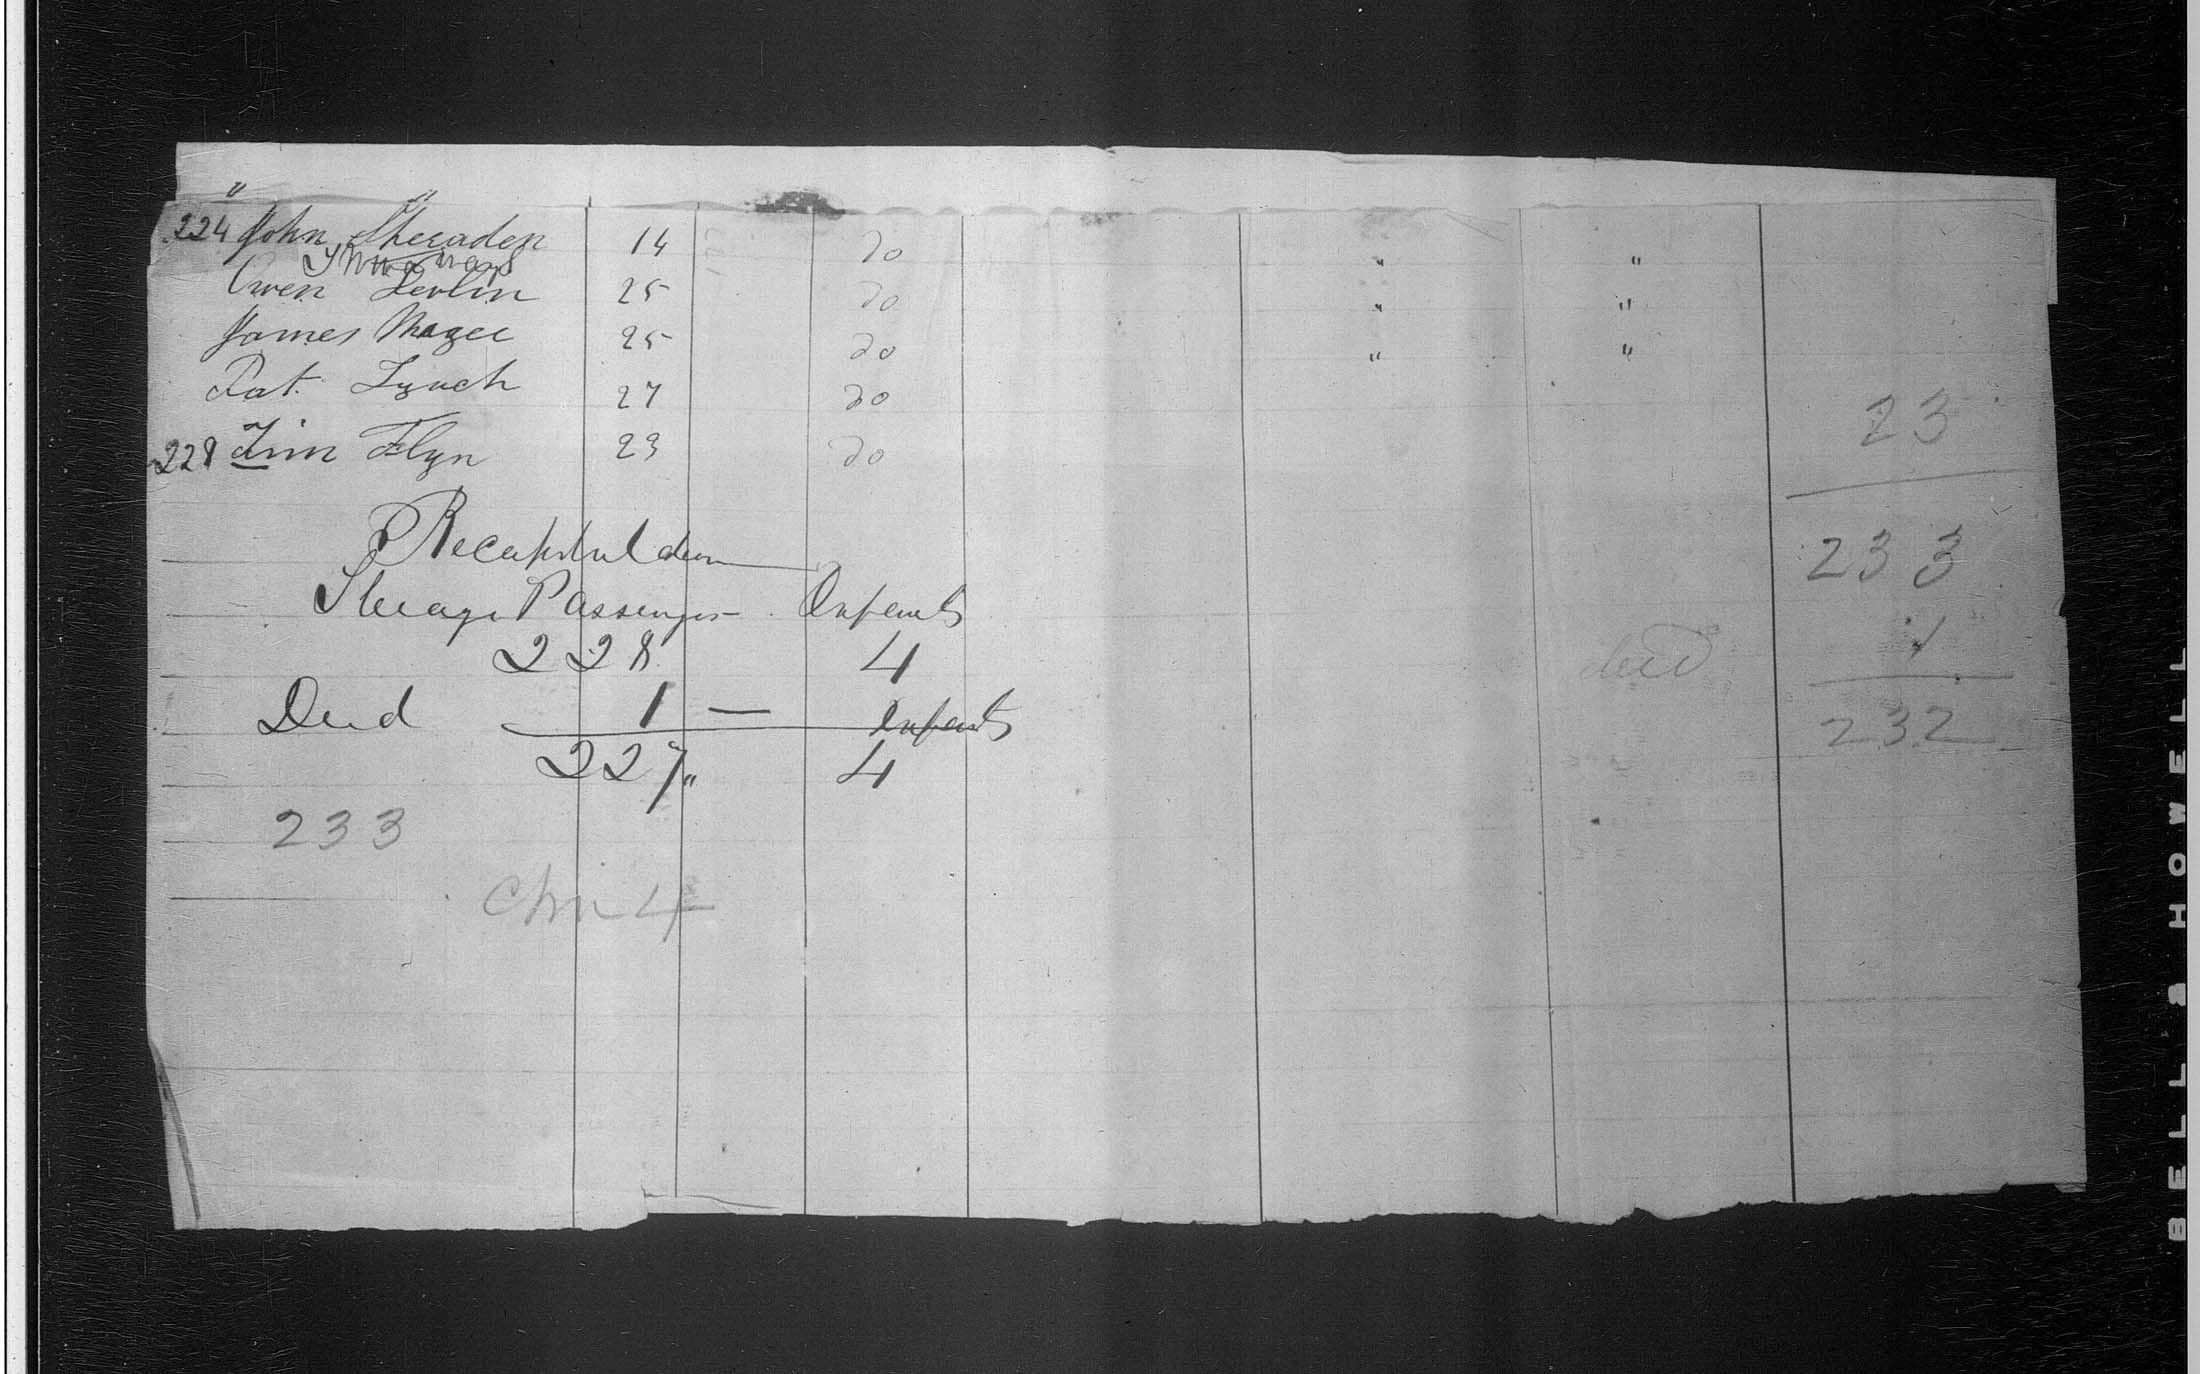 " "
224 John Sheraden 14 do " "
Stowaways
Owen Devlin 25 do " "
James Magee 25 do " "
Pat. Lynch 27 do
228 Tim Flyn 23 do
23
Recapitulation
233
Steerage Passengers Infants
228 4
1
died
Died 1 — Infants
232
227 " 4
233
Chn 4
BELL & HOWELL